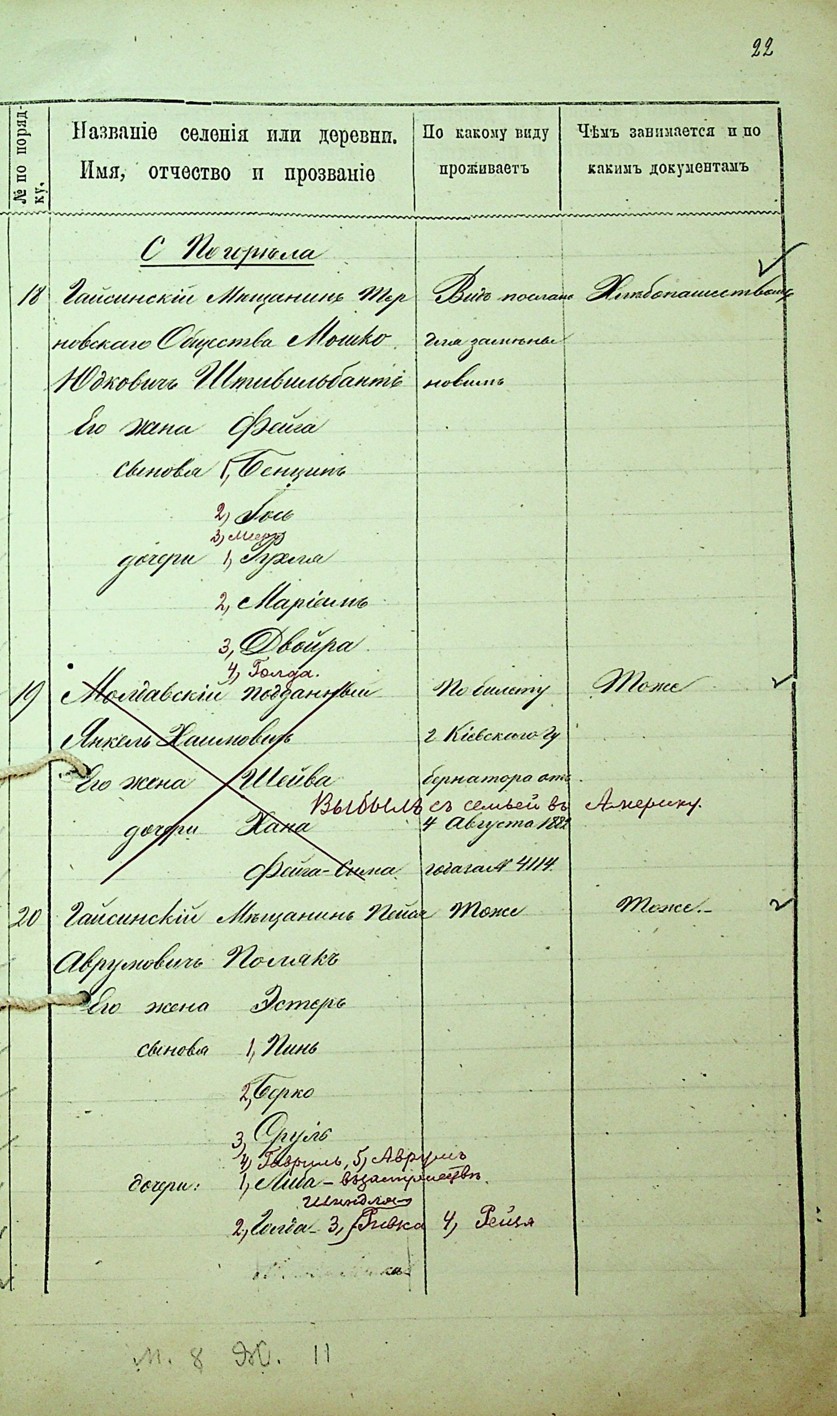 22
№ по поряд-
ку.
Названіе селенія или деревни.
Имя, отчество и прозваніе
По какому виду
проживаетъ
Чѣмъ занимается и по
какимъ документамъ
С Погорѣла
18 Гайсинскій Мѣщанинъ Тер Видъ посланъ Хлѣбопашествомъ
новскаго Общества Мошко для замѣны
Юдковичъ новымъ
Его жена Фейга
сыновья 1, Бенционъ
2, Іось
3, Меер
дочери 1, Рухля
2, Маріамъ
3, Двойра
4, Голда.
19 Молдавскій подданный По билету Тоже
Янкель Хаимовичъ г Кіевскаго Гу
Его жена Шейва бернатора отъ
Выбылъ съ семьей въ Америку.
дочери Хана 4 Августа 188
Фейга-Сима года за № 4114.
20 Гайсинскій Мѣщанинъ Пейся Тоже Тоже.-
Аврумовичъ Полякъ
Его жена Эстеръ
сыновья 1, Пинь
2, Берко
3, Сруль
4, Гавриль, 5, Аврумъ
дочери: 1, Либа - въ замужествѣ.
Шиндля
2, Голда - 3, Ривка 4, Рейзя
М. 8 Ж. 11